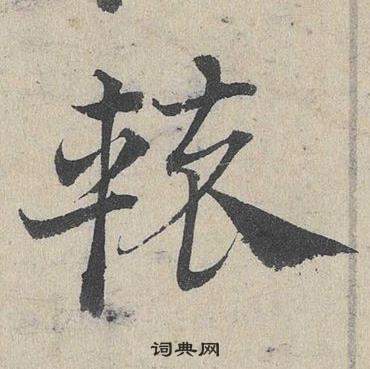 轅
词典网